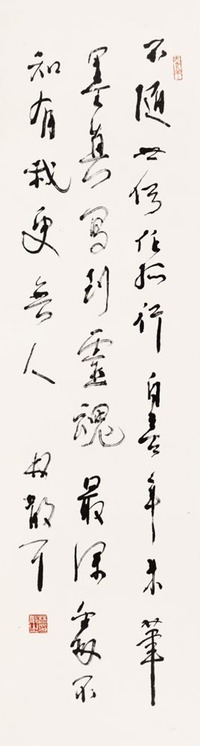 不随世俗任孤行自喜年来笔
墨真写到灵魂最深处不
知有我更无人
林散耳